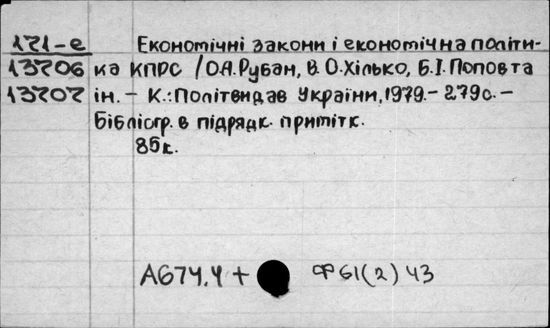 171-е Економічні закони і економічна політи-
13206 ка КПРС / О.А.Рубан, В.О.Хілько, Б.І.Попов та
13207 ін. - К.: Політвидав України, 1979. - 279 с. -
Бібліогр. в підрядк. приміт к.
85к.
А674.4 + Ф61(2)43